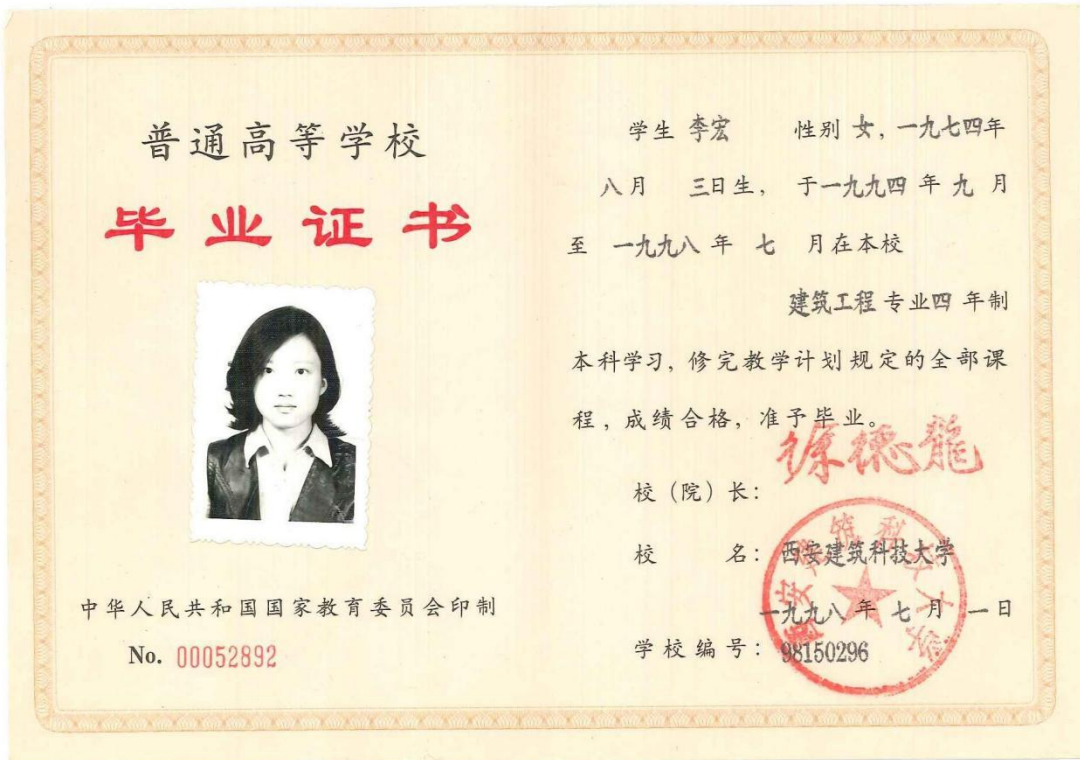 普通高等学校
毕业证书
中华人民共和国国家教育委员会印制
No. 00052892
学生 李宏 性别 女，一九七四年
八月 三日生， 于一九九四年九月
至 一九九八年 七 月在本校
建筑工程专业四年制
本科学习，修完教学计划规定的全部课
程，成绩合格，准予毕业。
校（院）长： 徐德龍
校 名： 西安建筑科技大学
一九九八年七月一日
学校编号： 98150296
西安建筑科技大学